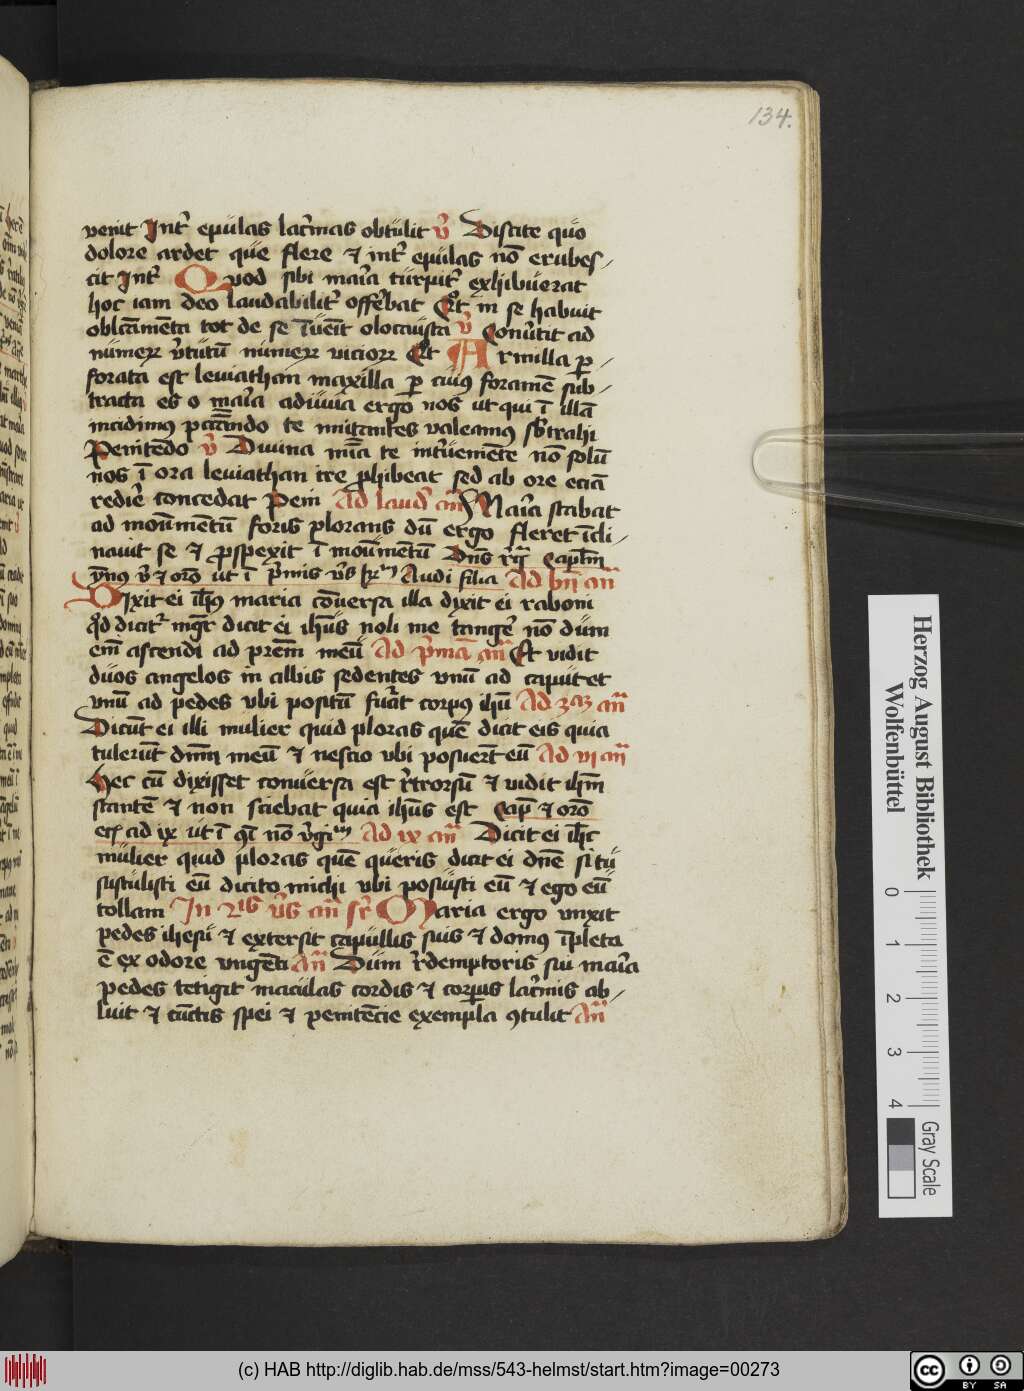 134.
venit Int᷑ epulas lac᷑mas obtulit v᷑ Discite quo
dolore ardet que flere ⁊ int᷑ epulas nō erubes/
cit Int᷑ Quod sibi mar̄ia turpit᷑ exhibuerat
hoc iam deo laudabilit᷑ offe᷑bat Qͦt in se habuit
oblcām̄eta tot de se īuēit olocausta v᷑ Conu᷑tit ad
numerꝝ v᷑tutū numerꝝ vicioꝝ Qͦt Armilla ꝑ/
forata est leviathan maxilla ꝑ cuiꝰ foramē sub/
tracta es o mar̄ia adiuva ergo nos ut qui ī illā
incidimꝰ te valeamꝰ sb᷑trahi
Penitēdo v᷑ Divina mīa te int᷑ueniēte nō solū
nos ī ora leviathan ire ꝓhibeat sed ab ore eciā
redie᷑ concedat Peni Ad laud᷑ an̄ Mar̄ia stabat
ad monūmētū foris plorans dū ergo fleret īcli/
navit se ⁊ ꝓspexit ī monūmētū Dn̄s r᷑g Capl̄m
ymꝰ v᷑ ⁊ oro᷑ ut ī p᷑mis v᷑s Audi filia Ad bn̄ an̄
Dixit ei ih̄ꝰ maria cōversa illa dixit ei raboni
qd̄ dicit᷑ mgr̄ dicit ei ih̄us noli me tange᷑ nō dum
em̄ ascendi ad prem̄ meū Ad p᷑mā an̄ Et vidit
duos angelos in albis sedentes unū ad caput et
unū ad pedes ubi positū fuāt corpꝰ ih̄u Ad 3cā an̄
Dicūt ei illi mulier quid ploras quē dicit eis quia
tulerūt dn̄m meū ⁊ nescio ubi posuerūt eū Ad vi an̄
Hec cū dixisset conversa est r᷑trorsū ⁊ vidit ih̄m
stantē ⁊ non sciebat quia ih̄us est Cap̄ ⁊ oro᷑
ad ix ut ī nō v᷑gi Ad ix an̄ Dicit ei ih̄c
mulier quid ploras quē queris dicit ei dn̄e si tu
sustulisti eū dicito michi ubi posuisti eū ⁊ ego eū
tollam In 2is v᷑s an̄ Maria ergo unxit
pedes ihesu ⁊ extersit capillis suis ⁊ domꝰ īpleta
ē ex odore ungēti An̄ Dum r᷑demptoris sui mar̄ia
pedes tetigit maculas cordis ⁊ corpus lac᷑mis ab/
luit ⁊ cūctis spei ⁊ penitēcie exempla ꝯtulit An̄
Herzog August Bibliothek
Wolfenbüttel
0 1 2 3 4
Gray Scale
(c) HAB http://diglib.hab.de/mss/543-helmst/start.htm?image=00273
cc BY SA